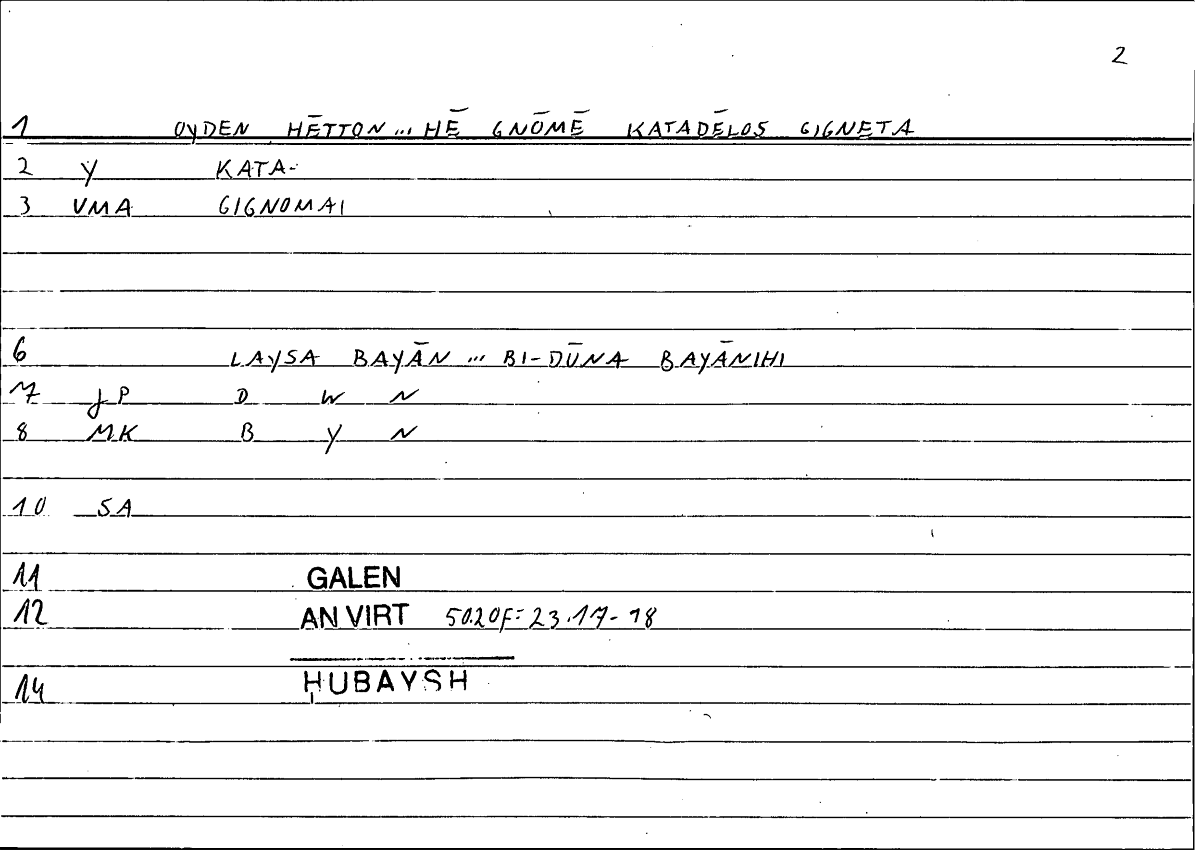 2
1 OYDEN HĒTTON ... HĒ GNŌMĒ KATADĒLOS GIGNETA
2 Y KATA-
3 VMA GIGNOMAI
6 LAYSA BAYĀN ... BI-DŪNA BAYĀNIHI
7 JP D W N
8 MK B Y N
10 SA
11 GALEN
12 AN VIRT 50.20F = 23.17-18
14 ḤUBAYSH